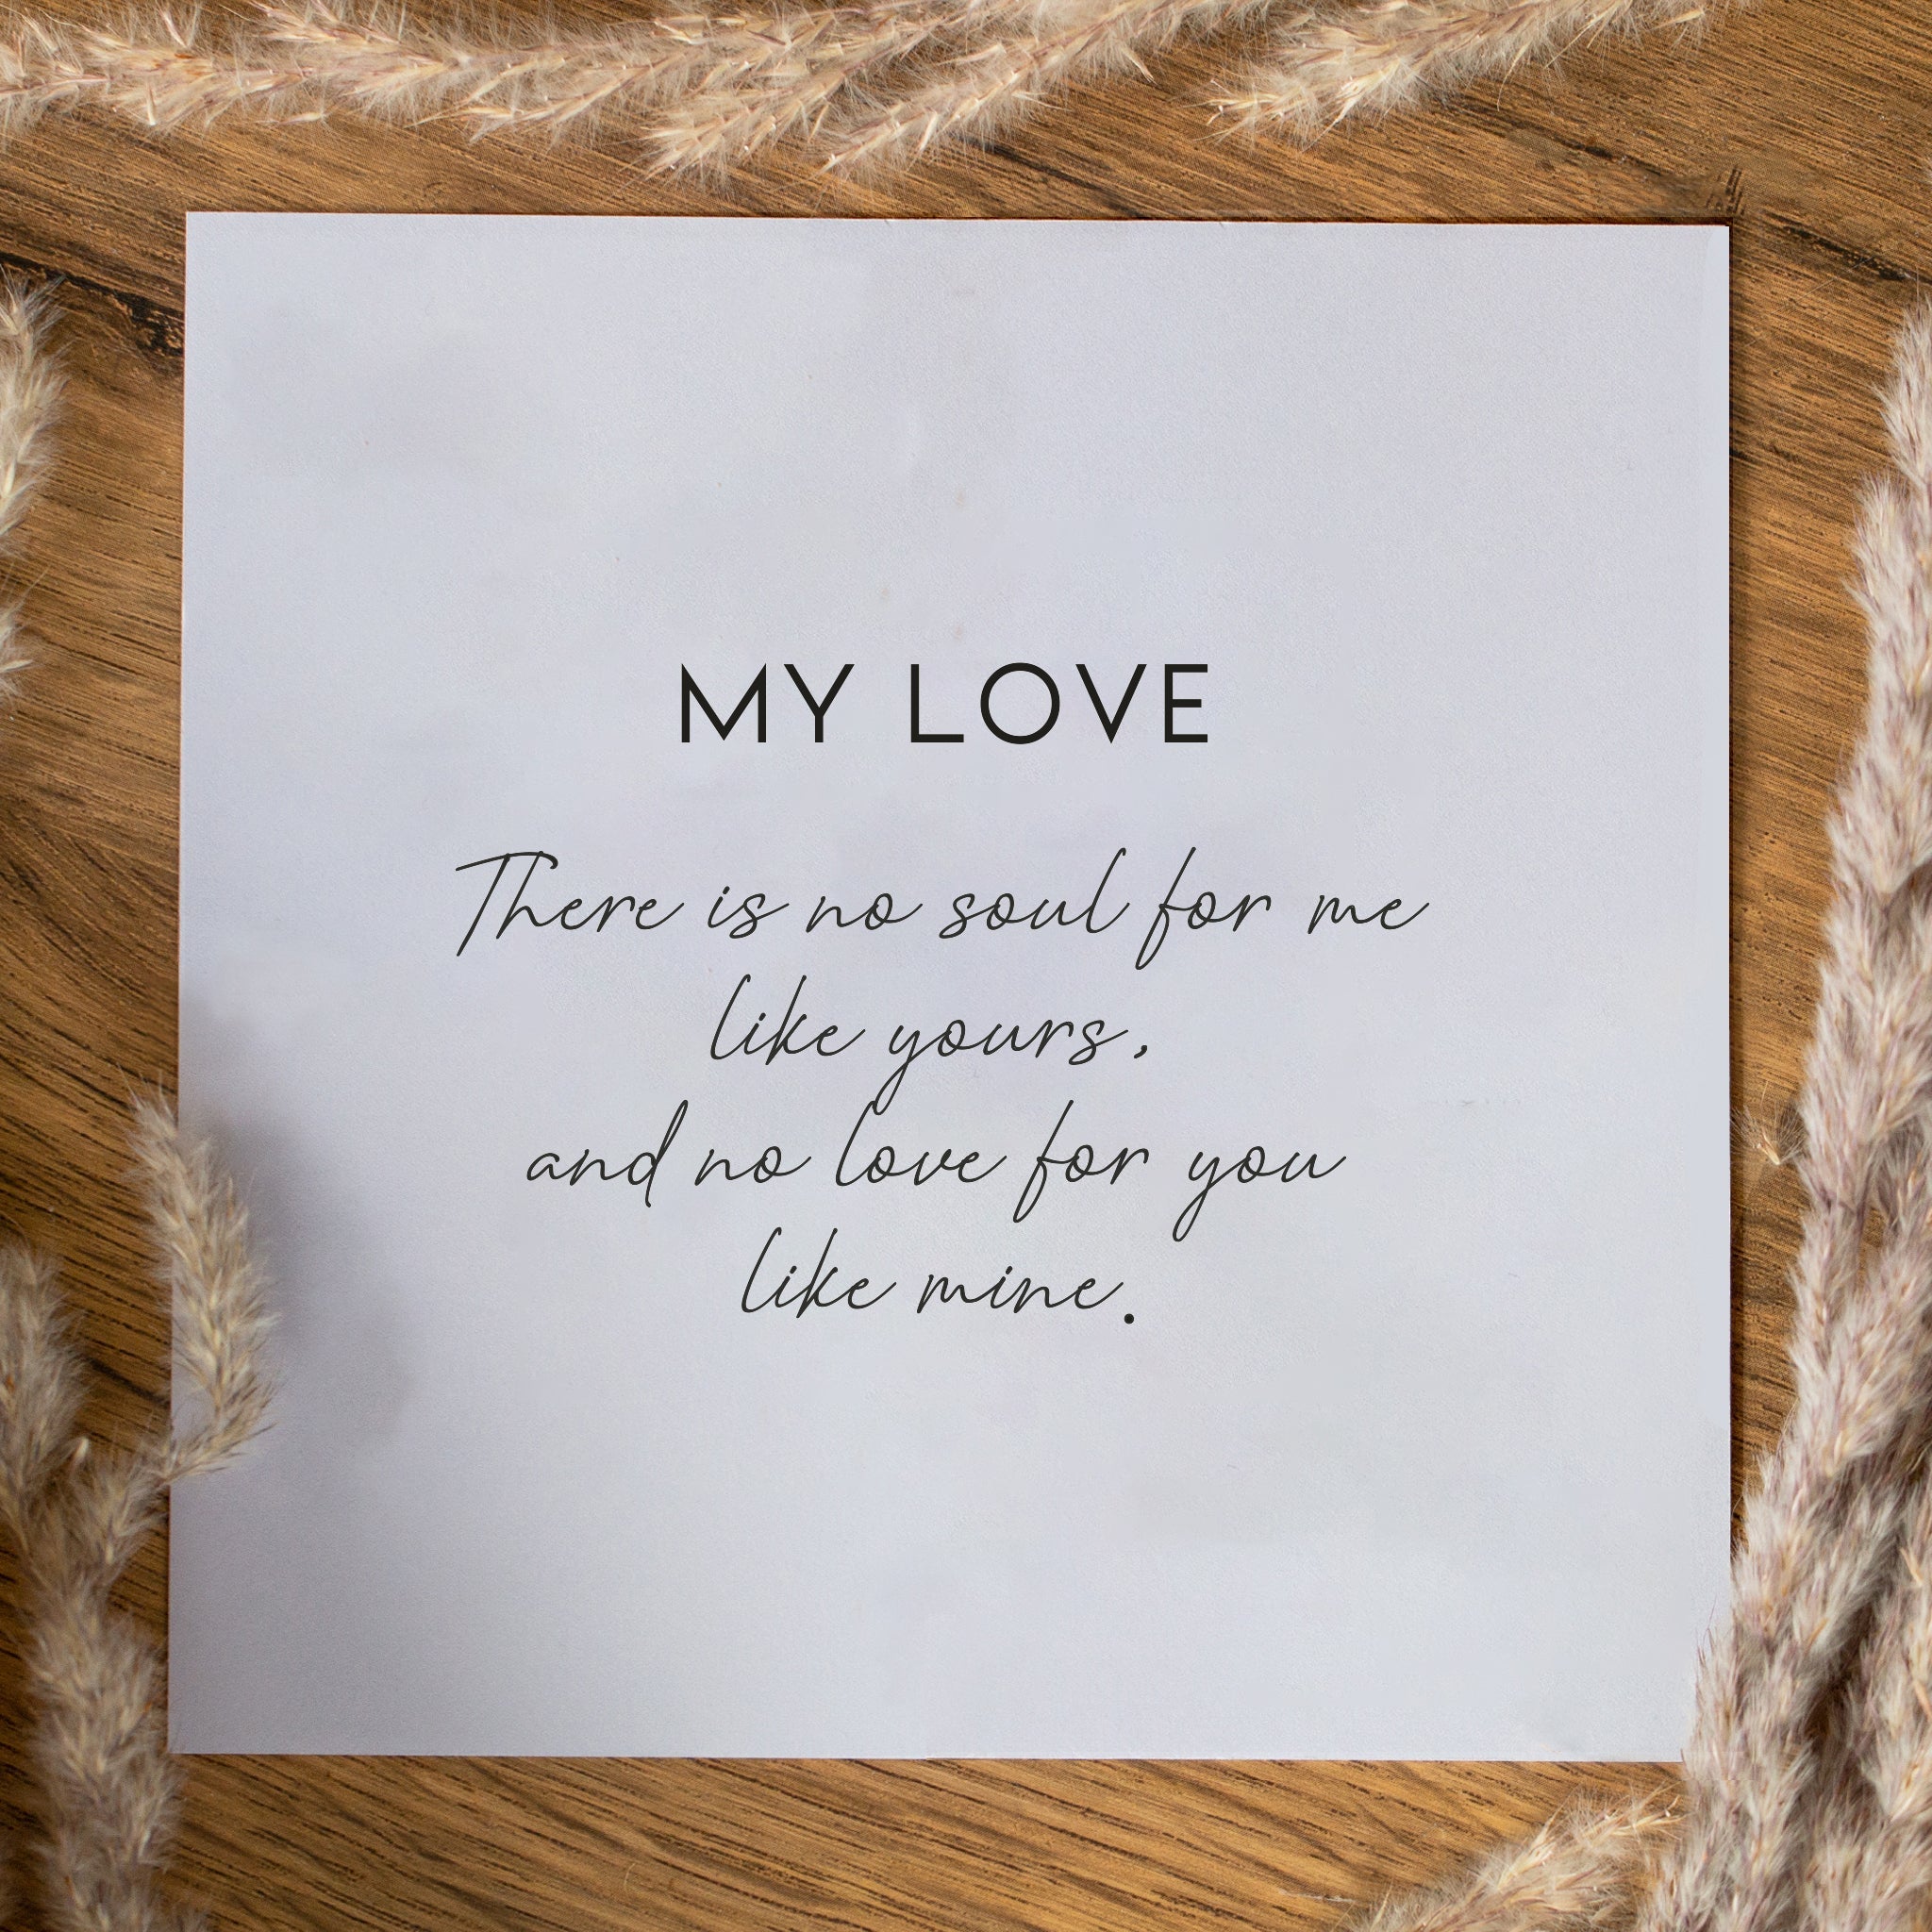 MY LOVE
There is no soul for me
like yours,
and no love for you
like mine.